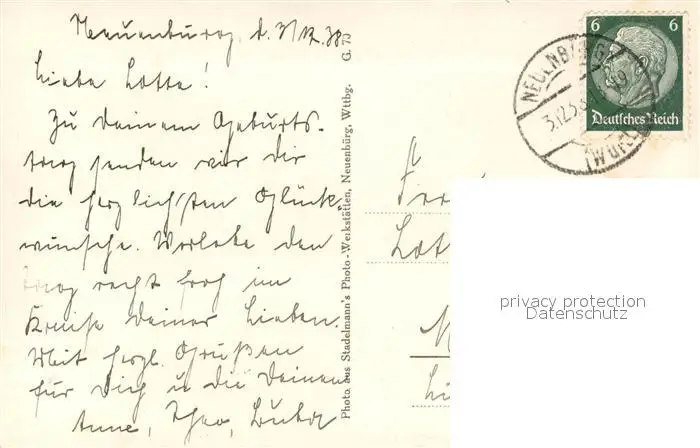 Neuenbürg, d. 3/12. 38
Liebe Lotte!
Zu Deinem Geburts-
tag senden wir Dir
die herzlichsten Glück-
wünsche. Verlebe den
Tag recht froh im
Kreise Deiner Lieben.
Mit herzl. Grüßen
für Dich u die Deinen
Anne, Theo,
Photo aus Stadelmann's Photo-Werkstätten, Neuenbürg, Wttbg. G. 70
6 6
Deutsches Reich
NEUENBÜRG
3.12.38
(WÜRTT)
Lot
privacy protection
Datenschutz